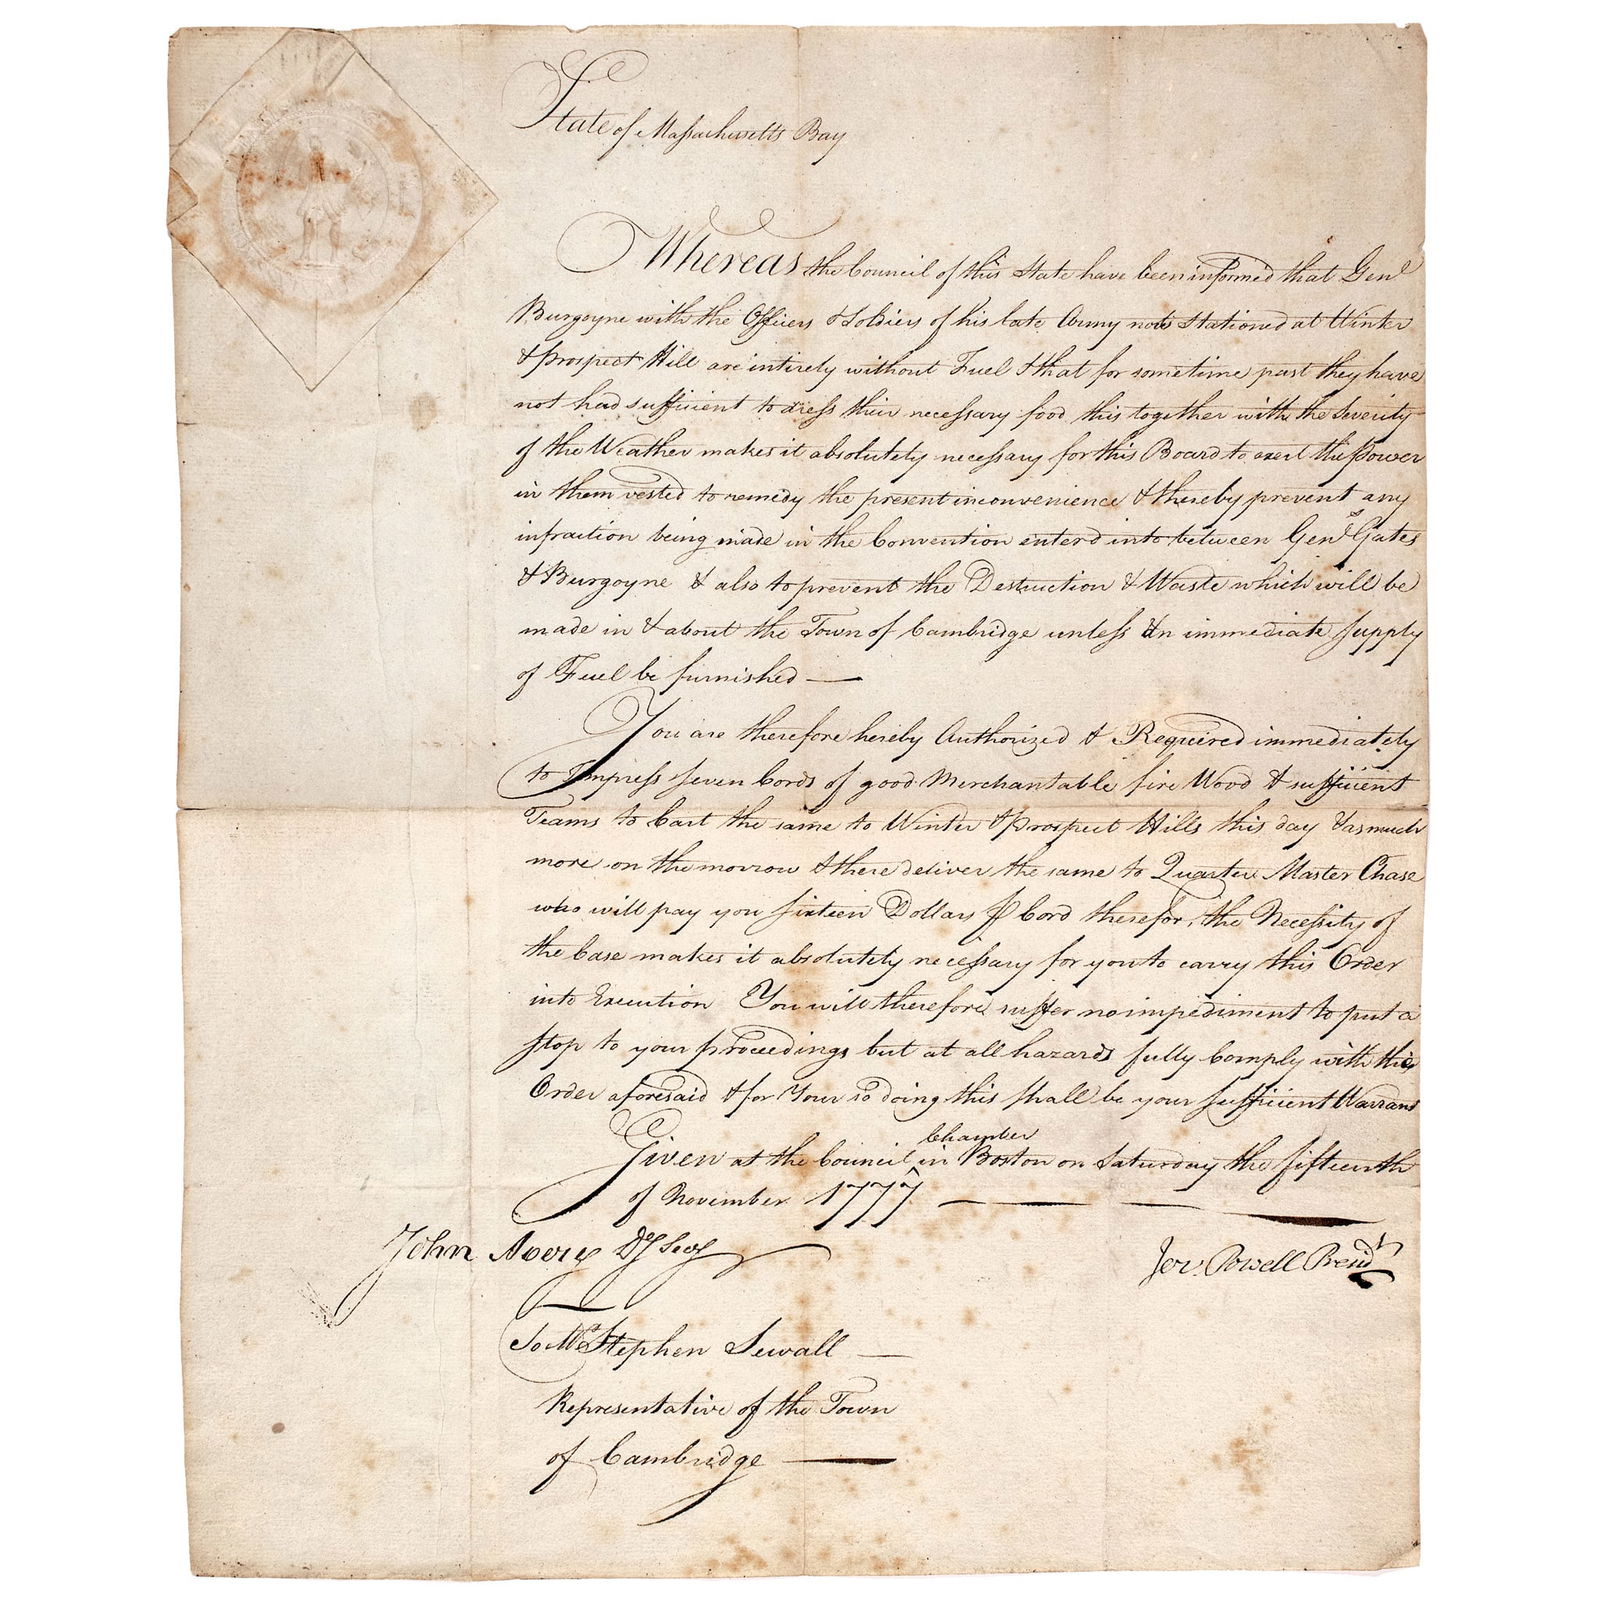 State of Massachusetts Bay
Whereas the Council of this State have been informed that Genl
Burgoyne with the Officers & Soldiers of his late Army now Stationed at Winter
& prospect Hill are intirely without Fuel & that for sometime past they have
not had sufficient to dress their necessary food, this together with the Severity
of the Weather makes it absolutely necessary for this Board to exert the Power
in them vested to remedy the present inconvenience & thereby prevent any
infraction being made in the Convention enterd into between Genls Gates
& Burgoyne & also to prevent the Destruction & Waste which will be
made in & about the Town of Cambridge unless an immediate supply
of Fuel be furnished —
You are therefore hereby Authorized & Required immediately
to Impress seven Cords of good Merchantable fire Wood & sufficient
Teams to Cart the same to Winter & prospect Hills this day & as much
more on the morrow & there deliver the same to Quarter Master Chase
who will pay you sixteen Dollars ⅌ Cord therefor, the Necessity of
the Case makes it absolutely necessary for you to carry this Order
into Execution You will therefore suffer no impediment to put a
stop to your proceedings but at all hazards fully Comply with this
Order aforesaid & for Your so doing this shall be your sufficient Warrant
Given at the Council Chamber in Boston on Saturday the fifteenth
of November 1777
John Avery Dy Secy
Jer. Powell Presidt
To Mr Stephen Sewall —
Representative of the Town
of Cambridge —